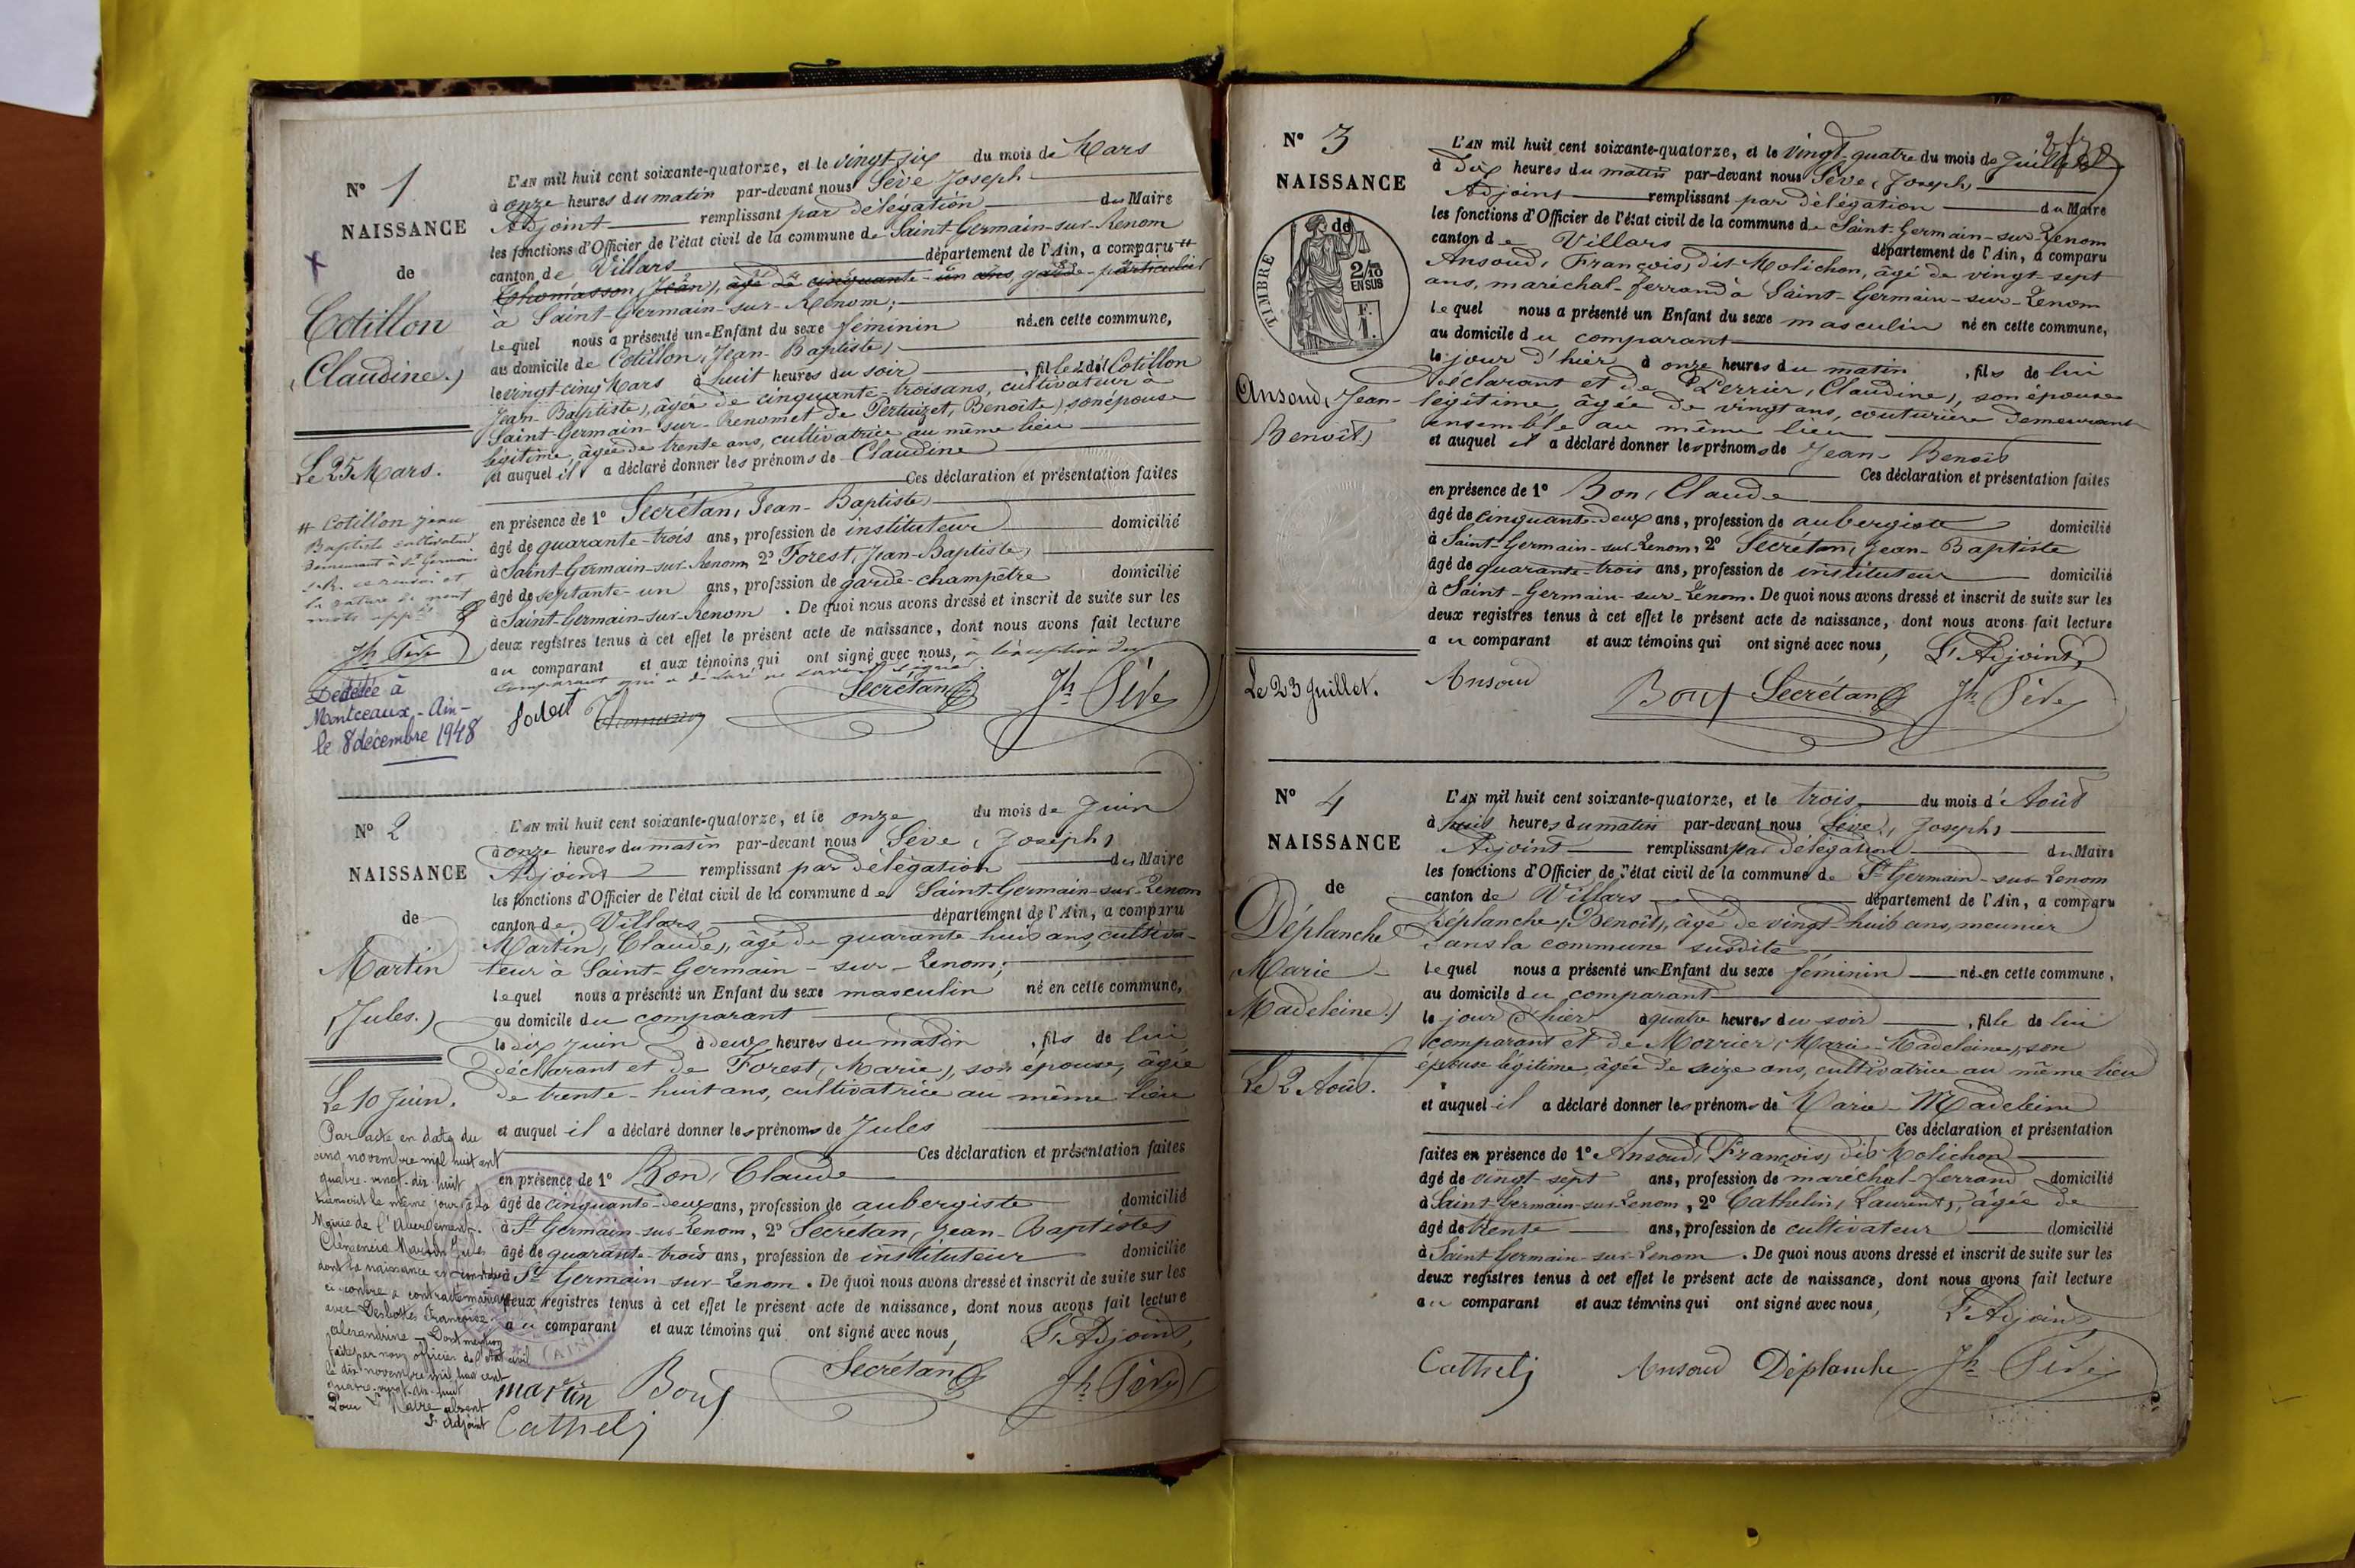 N° 1
NAISSANCE
de
Cotillon
(Claudine.)
Le 25 Mars.
# Cotillon Jean
Baptiste cultivateur
demeurant à St Germain
s. R. ce renvoi et
la rature de neuf
mots app
Jh Sève
Décédée à
Montceaux - Ain -
le 8 décembre 1948
L'AN mil huit cent soixante-quatorze, et le vingt-six du mois de Mars
à onze heures du matin par-devant nous Sève Joseph
Adjoint remplissant par délégation du Maire
les fonctions d'Officier de l'état civil de la commune de Saint-Germain-sur-Renom
canton de Villars département de l'Ain, a comparu #
Thomasson, Jean), âgé de cinquante-un ans, garde-particulier
à Saint-Germain-sur-Renom;
lequel nous a présenté une Enfant du sexe féminin née en cette commune,
au domicile de Cotillon, Jean-Baptiste)
le vingt-cinq Mars à huit heures du soir, fille de Cotillon
Jean-Baptiste), âgé de cinquante-trois ans, cultivateur à
Saint-Germain-sur-Renom et de Pertuizet, Benoîte) son épouse
légitime, âgée de trente ans, cultivatrice au même lieu
et auquel il a déclaré donner les prénoms de Claudine
Ces déclaration et présentation faites
en présence de 1° Secrétan, Jean-Baptiste)
âgé de quarante-trois ans, profession de instituteur domicilié
à Saint-Germain-sur-Renom, 2° Forest, Jean-Baptiste)
âgé de septante-un ans, profession de garde-champêtre domicilié
à Saint-Germain-sur-Renom. De quoi nous avons dressé et inscrit de suite sur les
deux registres tenus à cet effet le présent acte de naissance, dont nous avons fait lecture
au comparant et aux témoins qui ont signé avec nous, à l'exception du
comparant qui a déclaré ne savoir signer.
Secrétan Jh Sève
N° 2
NAISSANCE
de
Martin
(Jules.)
Le 10 Juin.
Par acte en date du
cinq novembre mil huit cent
quatre-vingt-dix-huit
transcrit le même jour à la
Mairie de l'Abergement-
Clémenciat Martin Jules
dont la naissance est constatée
ci-contre a contracté mariage
avec Desbottes Françoise
alexandrine - Dont mention
faite par nous officier de l'état civil
le dix novembre mil huit cent
quatre-vingt-dix-huit
Pour le Maire absent
L'Adjoint
L'AN mil huit cent soixante-quatorze, et le onze du mois de Juin
à onze heures du matin par-devant nous Sève (Joseph)
Adjoint remplissant par délégation du Maire
les fonctions d'Officier de l'état civil de la commune de Saint-Germain-sur-Renom
canton de Villars département de l'Ain, a comparu
Martin, Claude), âgé de quarante-huit ans, cultiva-
teur à Saint-Germain-sur-Renom;
lequel nous a présenté un Enfant du sexe masculin né en cette commune,
au domicile du comparant
le dix Juin à deux heures du matin, fils de lui
déclarant et de Forest, Marie), son épouse, âgée
de trente-huit ans, cultivatrice au même lieu
et auquel il a déclaré donner les prénoms de Jules
Ces déclaration et présentation faites
en présence de 1° Bon, Claude
âgé de cinquante-deux ans, profession de aubergiste domicilié
à St Germain-sur-Renom, 2° Secrétan, Jean-Baptiste)
âgé de quarante-trois ans, profession de instituteur domicilié
à St Germain-sur-Renom. De quoi nous avons dressé et inscrit de suite sur les
deux registres tenus à cet effet le présent acte de naissance, dont nous avons fait lecture
au comparant et aux témoins qui ont signé avec nous,
L'Adjoint,
(AIN)
martin Bon Secrétan Jh Sève
Cathelj
N° 3
NAISSANCE
de
TIMBRE
2/10
EN SUS
F.
1.
Ansoud, Jean-
Benoît)
Le 23 Juillet.
L'AN mil huit cent soixante-quatorze, et le vingt-quatre du mois de Juillet
à dix heures du matin par-devant nous Sève, Joseph)
Adjoint remplissant par délégation du Maire
les fonctions d'Officier de l'état civil de la commune de Saint-Germain-sur-Renom
canton de Villars département de l'Ain, a comparu
Ansoud, François) dit Molichon, âgé de vingt-sept
ans, maréchal-ferrand à Saint-Germain-sur-Renom
lequel nous a présenté un Enfant du sexe masculin né en cette commune,
au domicile du comparant
le jour d'hier à onze heures du matin, fils de lui
déclarant et de Perrier, Claudine), son épouse
légitime, âgée de vingt ans, couturière demeurant
ensemble au même lieu
et auquel il a déclaré donner les prénoms de Jean-Benoît
Ces déclaration et présentation faites
en présence de 1° Bon, Claude
âgé de cinquante-deux ans, profession de aubergiste domicilié
à Saint-Germain-sur-Renom, 2° Secrétan, Jean-Baptiste
âgé de quarante-trois ans, profession de instituteur domicilié
à Saint-Germain-sur-Renom. De quoi nous avons dressé et inscrit de suite sur les
deux registres tenus à cet effet le présent acte de naissance, dont nous avons fait lecture
au comparant et aux témoins qui ont signé avec nous,
L'Adjoint,
Ansoud Bon Secrétan Jh Sève
N° 4
NAISSANCE
de
Déplanche
(Marie
Madeleine.)
Le 2 Août.
L'AN mil huit cent soixante-quatorze, et le trois du mois d'Août
à huit heures du matin par-devant nous Sève, Joseph)
Adjoint remplissant par délégation du Maire
les fonctions d'Officier de l'état civil de la commune de St Germain-sur-Renom
canton de Villars département de l'Ain, a comparu
Déplanche, Benoît), âgé de vingt-huit ans, meunier
dans la commune susdite
lequel nous a présenté une Enfant du sexe féminin née en cette commune,
au domicile du comparant
le jour d'hier à quatre heures du soir, fille de lui
comparant et de Morrier, Marie-Madeleine), son
épouse légitime, âgée de seize ans, cultivatrice au même lieu
et auquel il a déclaré donner les prénoms de Marie-Madeleine
Ces déclaration et présentation
faites en présence de 1° Ansoud, François) dit Molichon
âgé de vingt-sept ans, profession de maréchal-ferrand domicilié
à Saint-Germain-sur-Renom, 2° Cathelin, Laurent), âgée de
âgé de trente ans, profession de cultivateur domicilié
à Saint-Germain-sur-Renom. De quoi nous avons dressé et inscrit de suite sur les
deux registres tenus à cet effet le présent acte de naissance, dont nous avons fait lecture
au comparant et aux témoins qui ont signé avec nous,
L'Adjoint
Cathelj Ansoud Déplanche Jh Sève